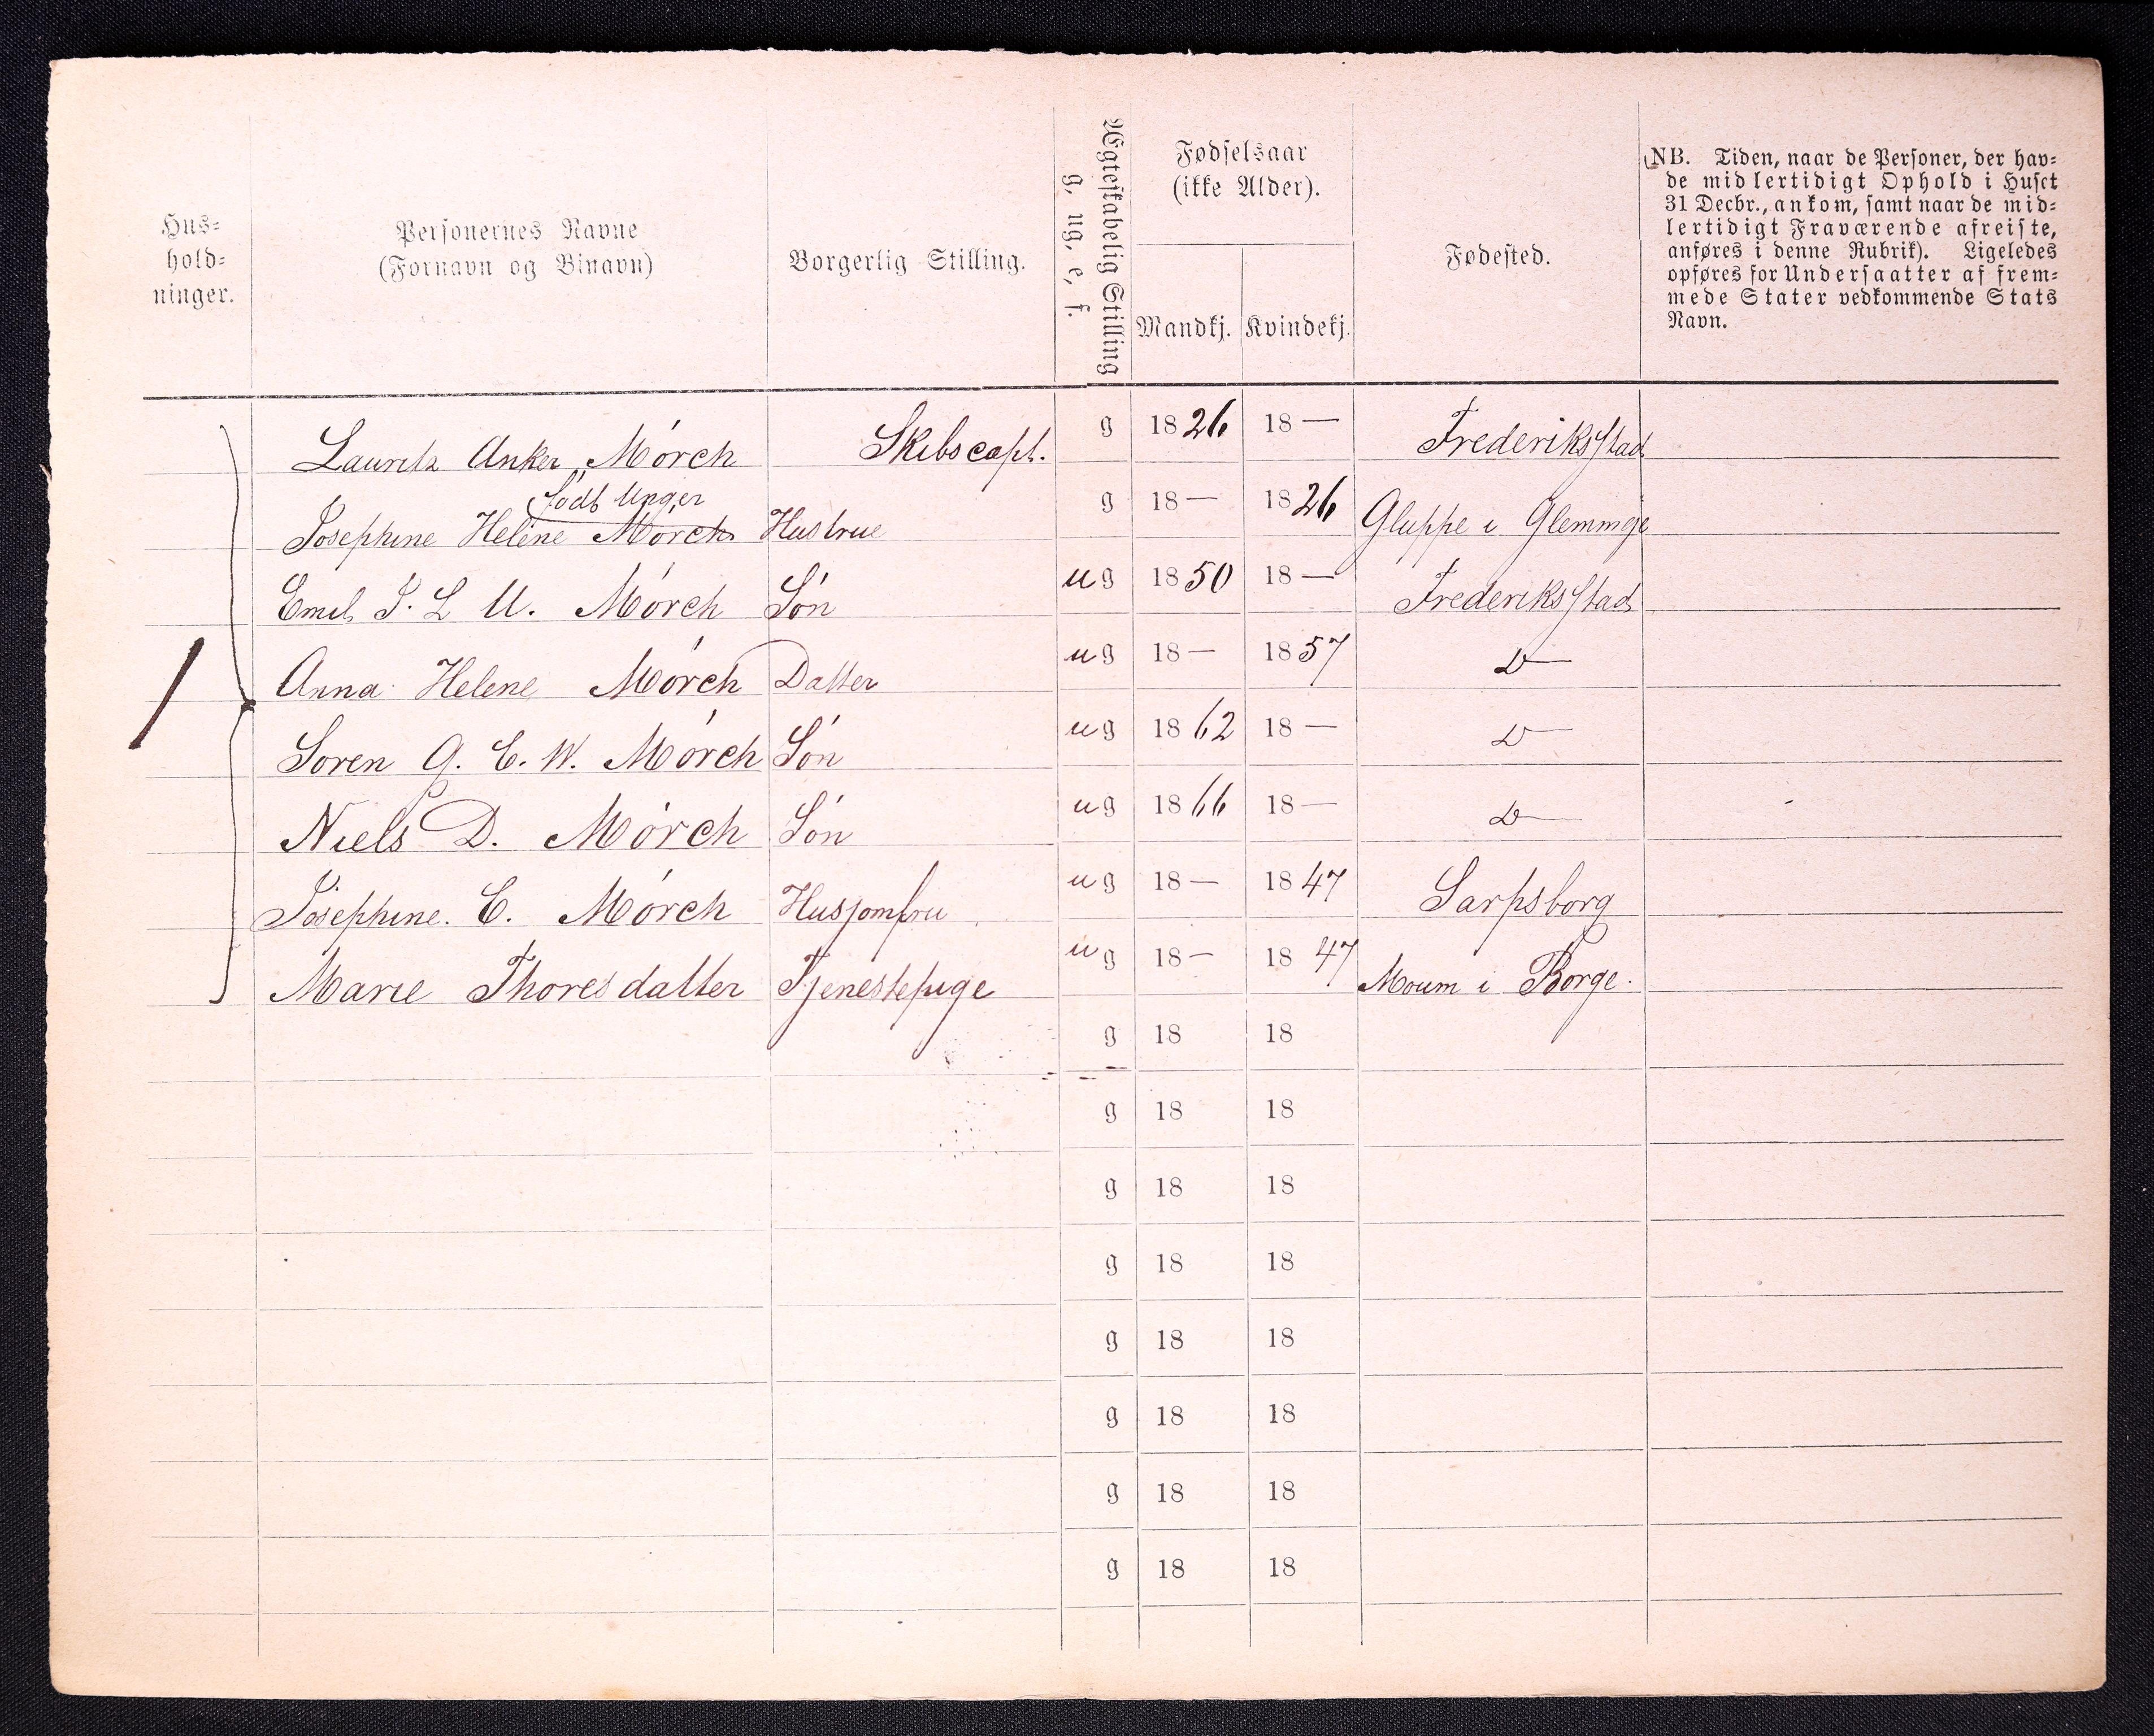 Hus-
hold-
ninger.
Personernes Navne
(Fornavn og Binavn)
Borgerlig Stilling.
Ægteskabelig Stilling
g, ug, e, f.
Fødselsaar
(ikke Alder).
Mandkj. Kvindekj.
Fødested.
NB. Tiden, naar de Personer, der hav-
de midlertidigt Ophold i Huset
31 Decbr., ankom, samt naar de mid-
lertidigt Fraværende afreiste,
anføres i denne Rubrik). Ligeledes
opføres for Undersaatter af frem-
mede Stater vedkommende Stats
Navn.
Lauritz Anker Mörch Skibscapt. g 1826 18— Frederiksstad
född Unger
Josephine Heline Mörch Hustrue g 18— 1826 Gluppe i Glemmeje
Emil J. L U. Mörch Sön ug 1850 18— Frederiksstad
1 Anna Helene Mörch Datter ug 18— 1857 D—
Soren G. C. W. Mörch Sön ug 1862 18— D—
Niels D. Mörch Sön ug 1866 18— D—
Josephine. C. Mörch Husjomfru ug 18— 1847 Sarpsborg
Marie Thoresdatter Tjenestepige ug 18— 1847 Moum i Borge.
g 18 18
g 18 18
g 18 18
g 18 18
g 18 18
g 18 18
g 18 18
g 18 18